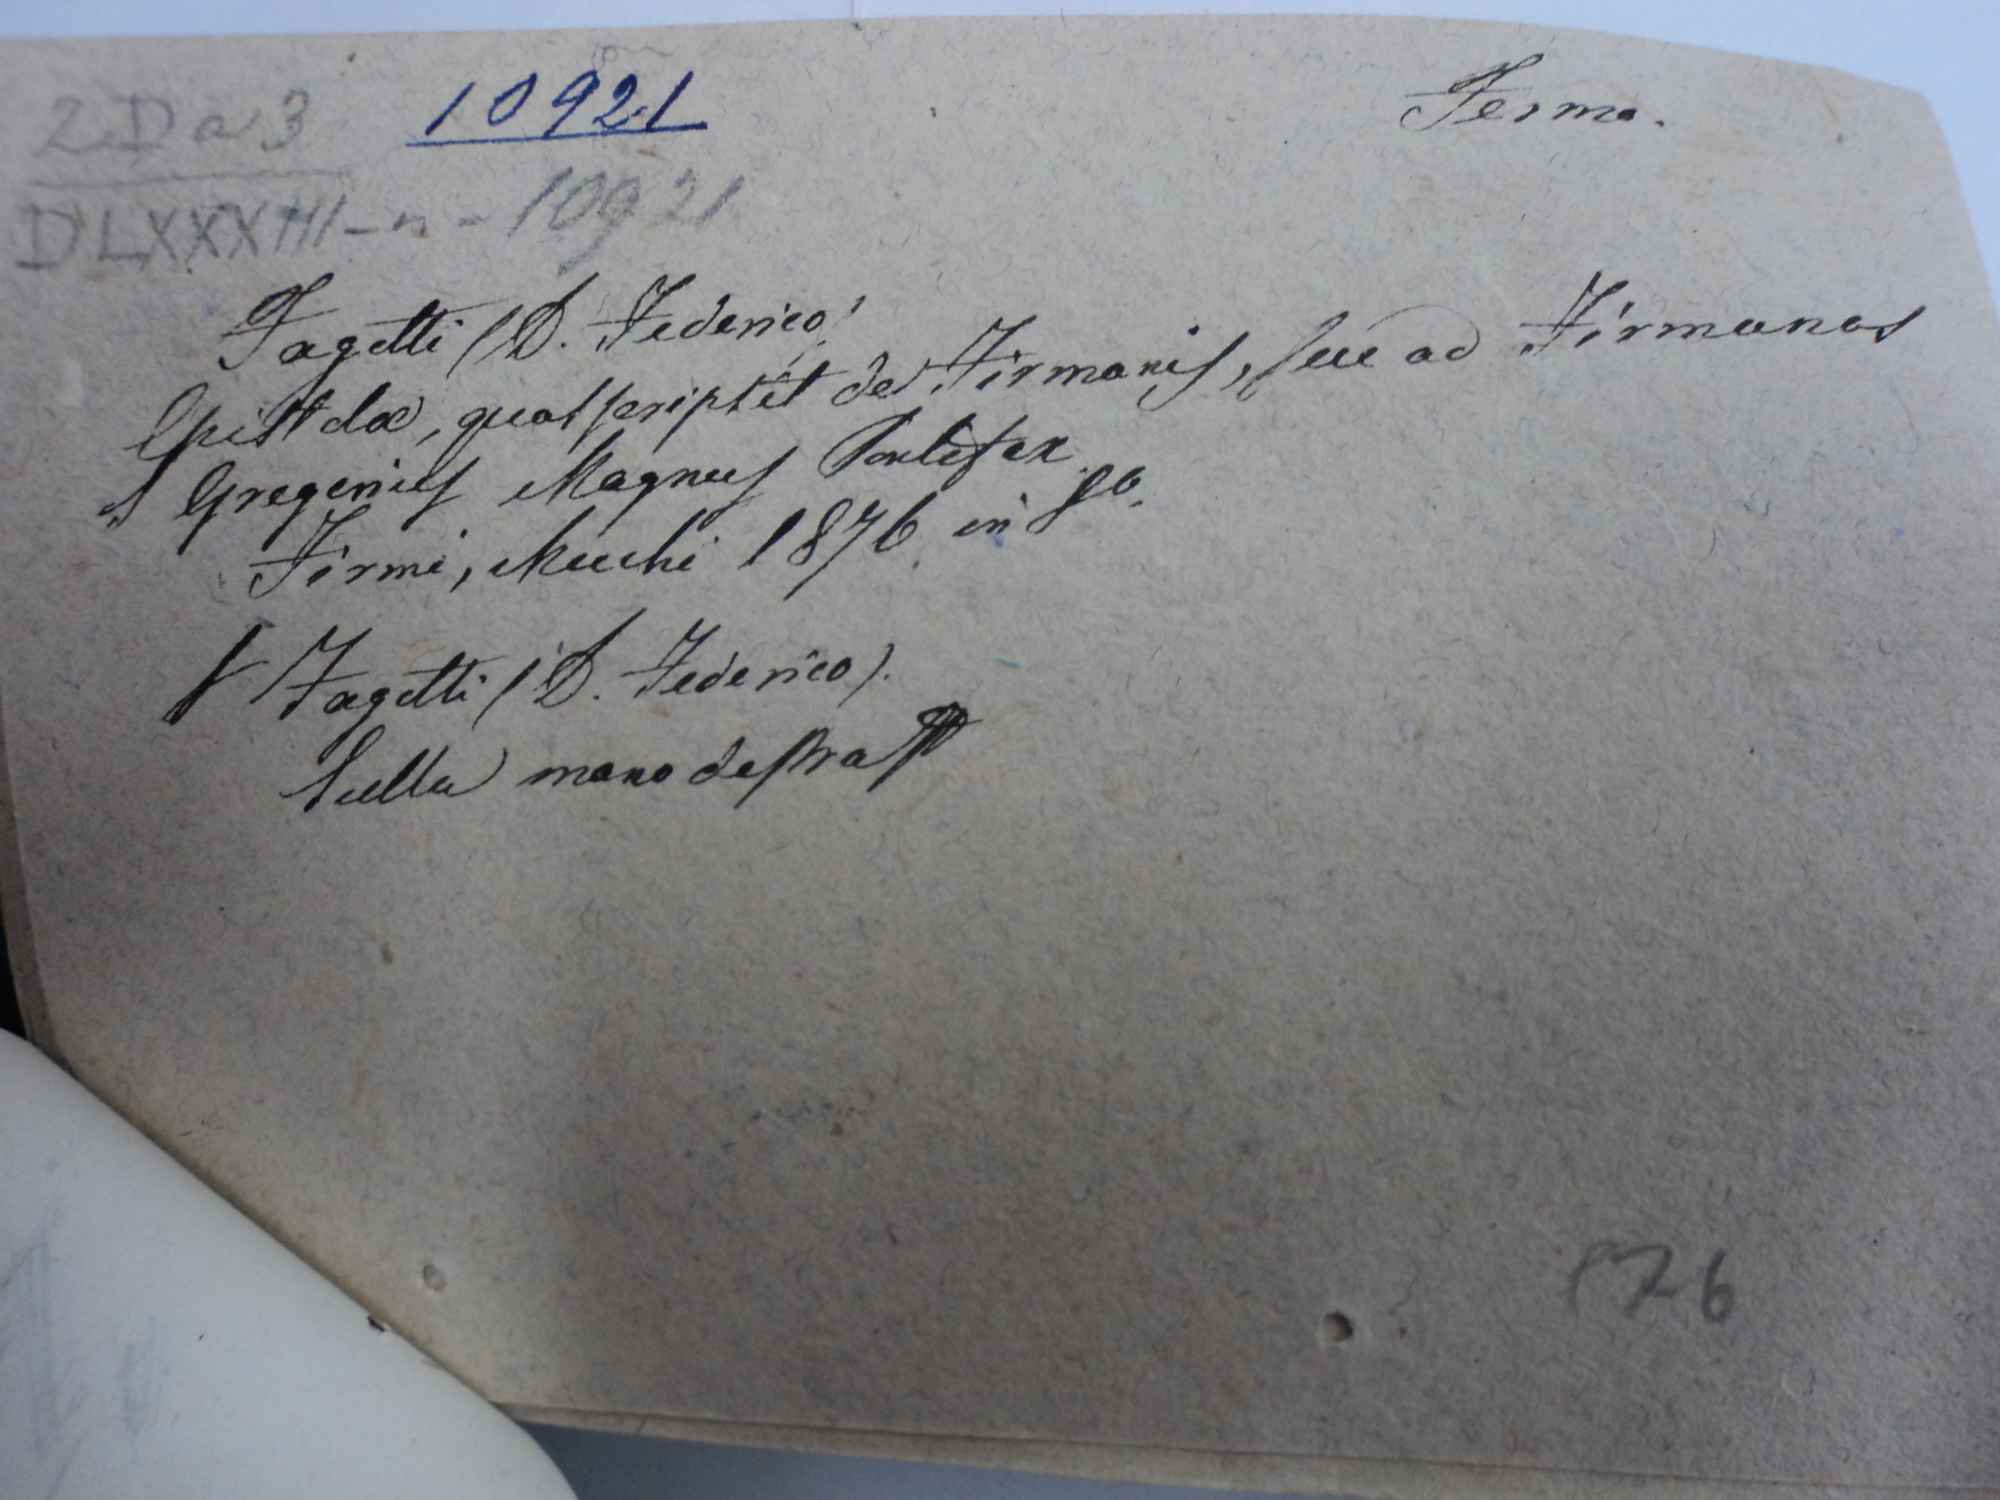 2 D a 3
10921
Fermo.
DLXXXIII - n - 10921
Fagotti (D. Federico)
Epistolæ, quas scripsit de Firmanis, seu ad Firmanos
S Gregorius Magnus Pontifex
Firmi, Mucchi 1876. in 8o.
Fagotti (D. Federico).
Sulla mano destra
876